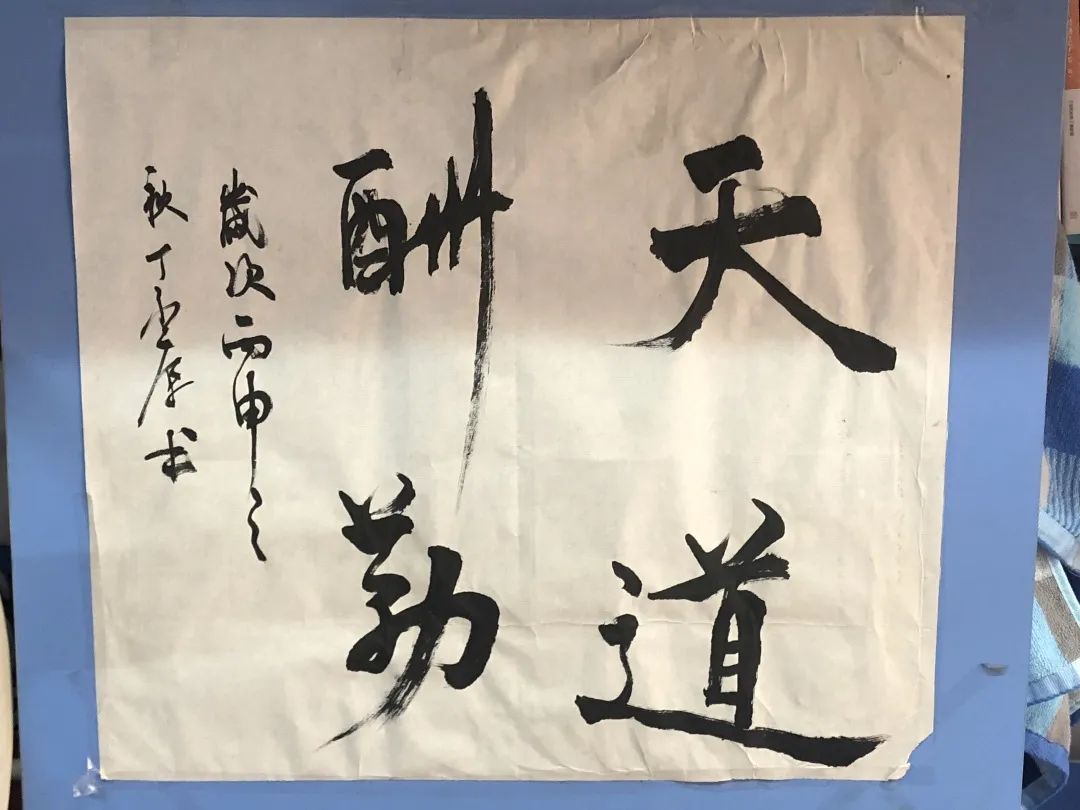 天道
酬勤
歲次丙申之
秋丁 書